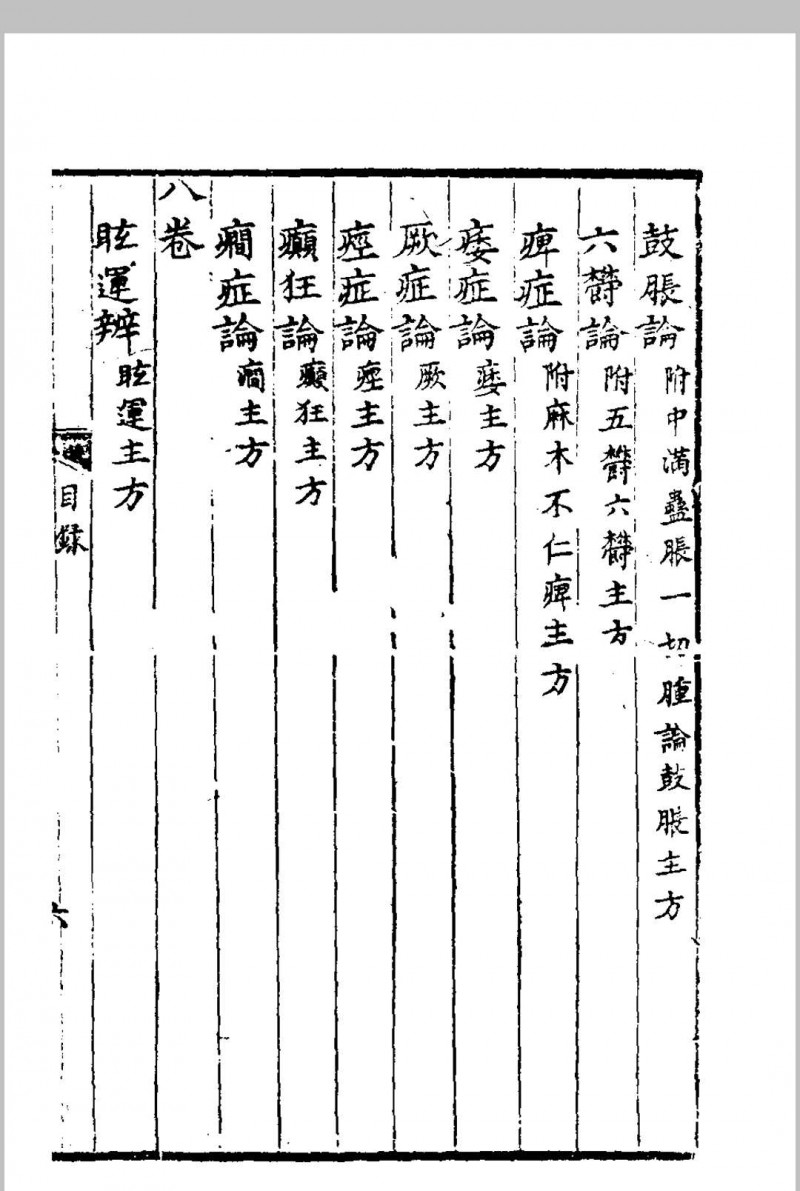 鼓脹論 附中滿蠱脹一切腫論鼓脹主方
六欝論 附五欝六欝主方
痺症論 附麻木不仁痺主方
痿症論 痿主方
厥症論 厥主方
痙症論 痙主方
癲狂論 癲狂主方
癇症論 癇主方
八卷
眩運辨 眩運主方
目錄
六